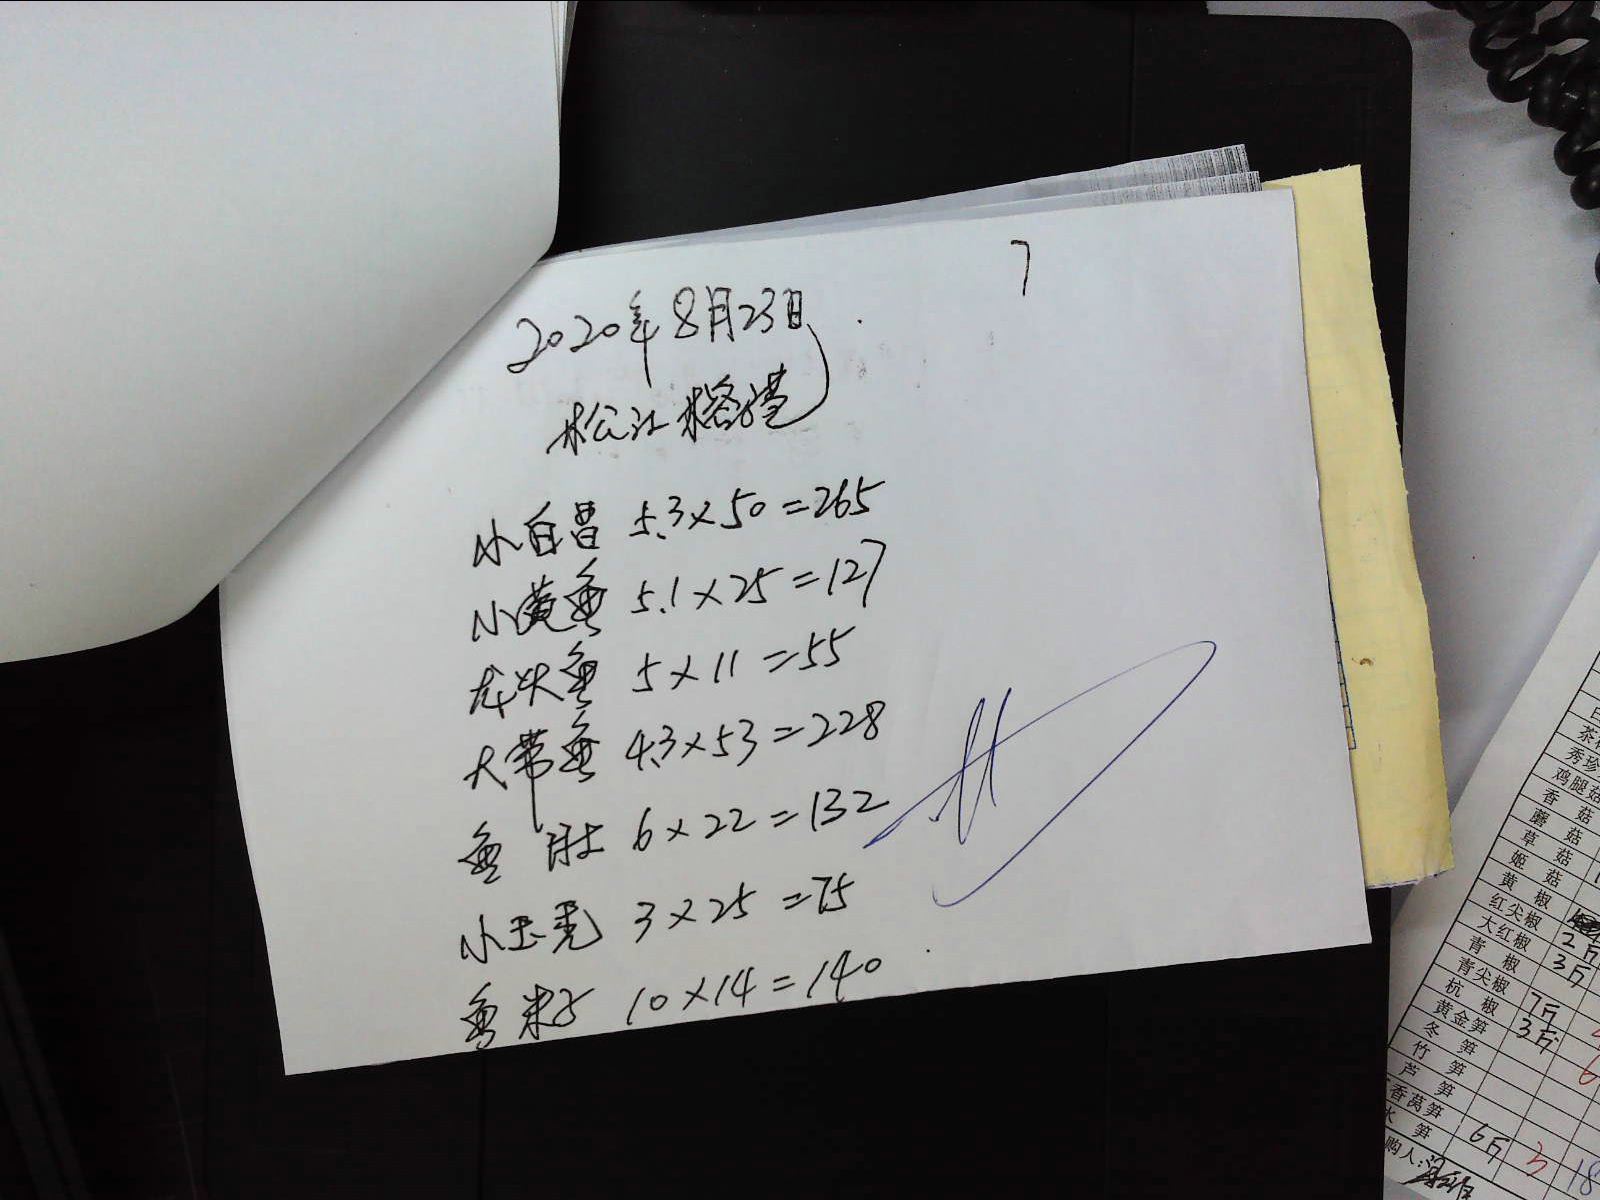 7
2020年8月23日
松江
小白 5.3×50=265
小黄鱼 5.1×25=127
龙头鱼 5×11=55
大带鱼 4.3×53=228
鱼肚 6×22=132
小玉秃 3×25=75
鱼米子 10×14=140
秀珍
鸡腿菇
香菇
蘑菇
草菇
姬菇
黄椒
红尖椒
大红椒 2斤
青椒 3斤
青尖椒
杭椒 7斤
黄金笋 3斤
冬笋
竹笋
芦笋
香莴笋
水笋 6斤 3 18
购人: